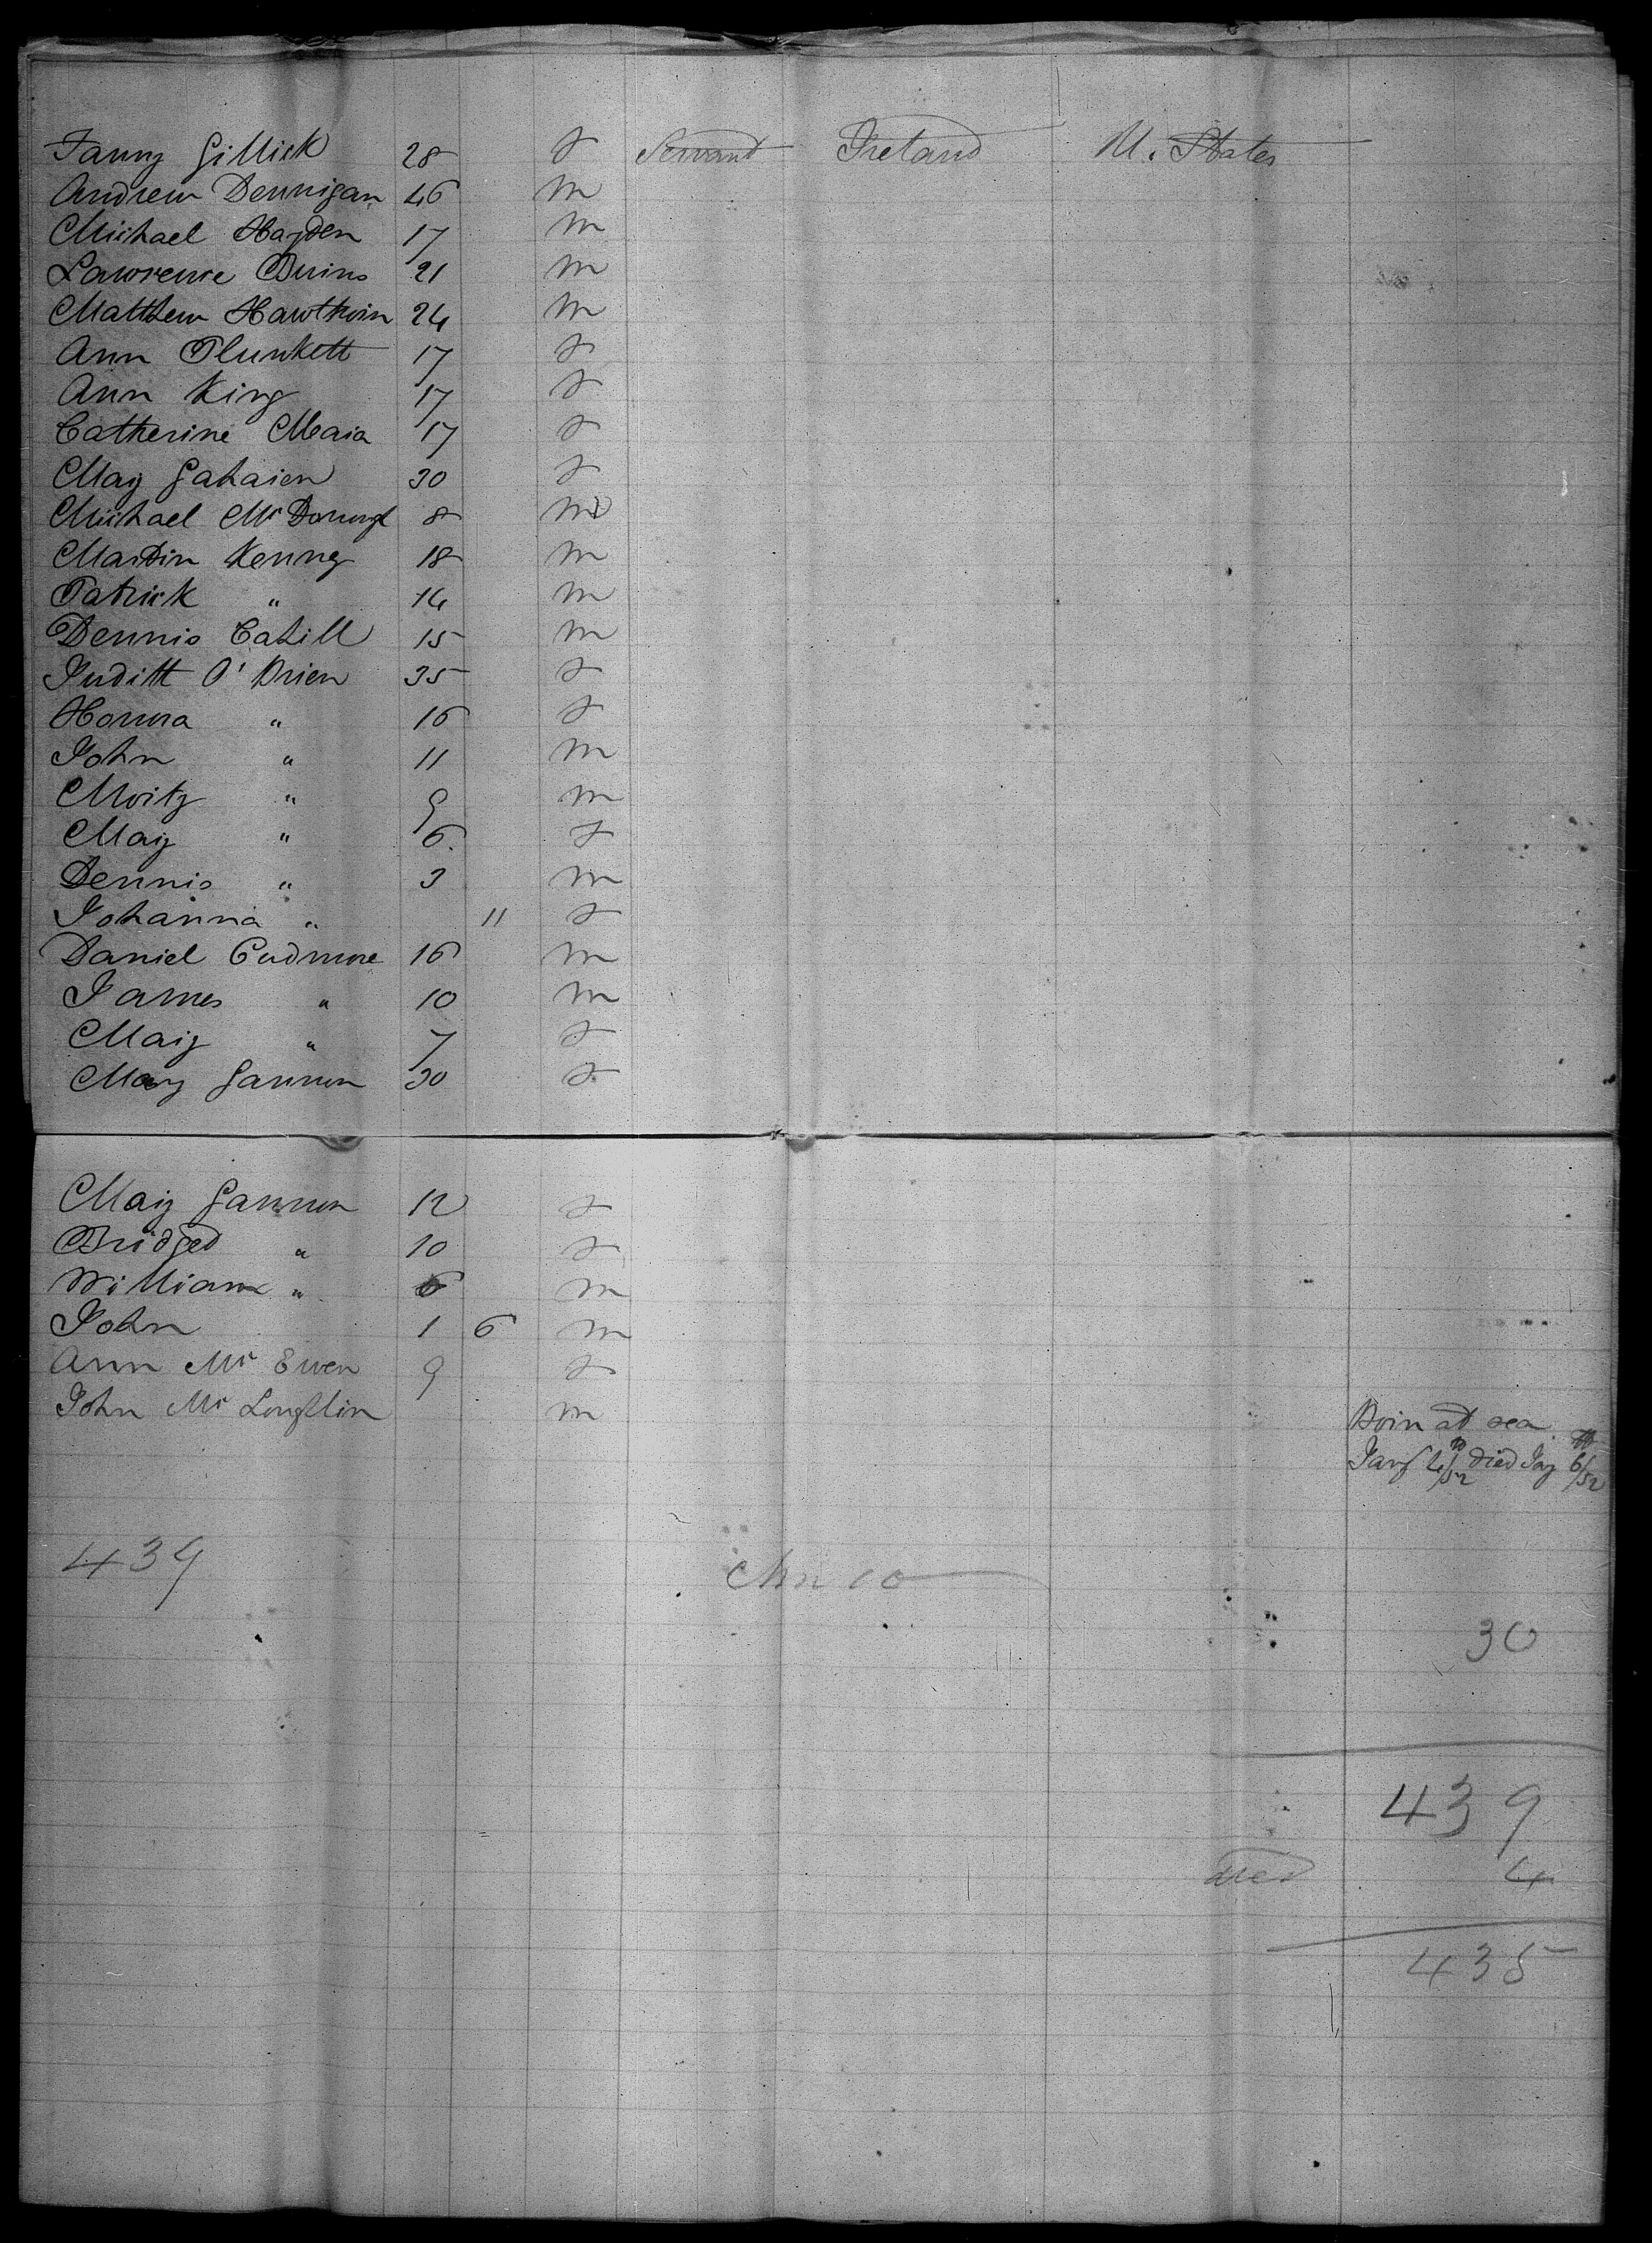 Fanny Gillick 28 f Servant Ireland U. States
Andrew Dennigan 46 m
Michael Hayden 17 m
Lawrence Burns 21 m
Matthew Hawthorn 24 m
Ann Plunkett 17 f
Ann King 17 f
Catherine Meara 17 f
Mary Gahaien 30 f
Michael Mc Donough 8 m
Martin Kenny 18 m
Patrick " 14 m
Dennis Cahill 15 m
Judith O'Brien 35 f
Honora " 16 f
John " 11 m
Moritz " 9 m
Mary " 6 f
Dennis " 3 m
Johanna " 11 f
Daniel Cudmore 16 m
James " 10 m
Mary " 7 f
Mary Gannon 30 f
Mary Gannon 12 f
Bridged " 10 f
William " 6 m
John 1 6 m
Ann Mc Ewen 9 f
John Mc Loughlin m Born at sea
Jany 4th/52 died Jany 6th/52
439
30
439
died 4
435